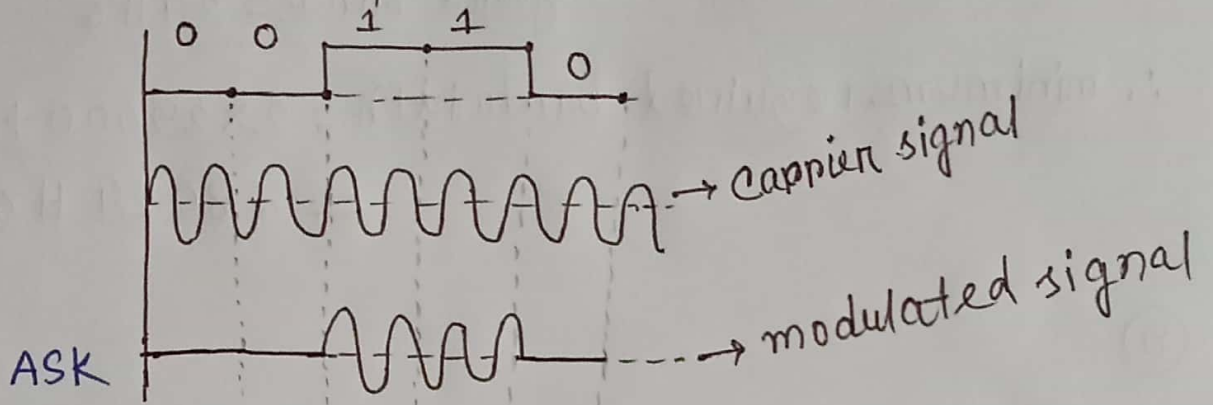 0 0 1 1 0
→ Carrier signal
ASK → modulated signal